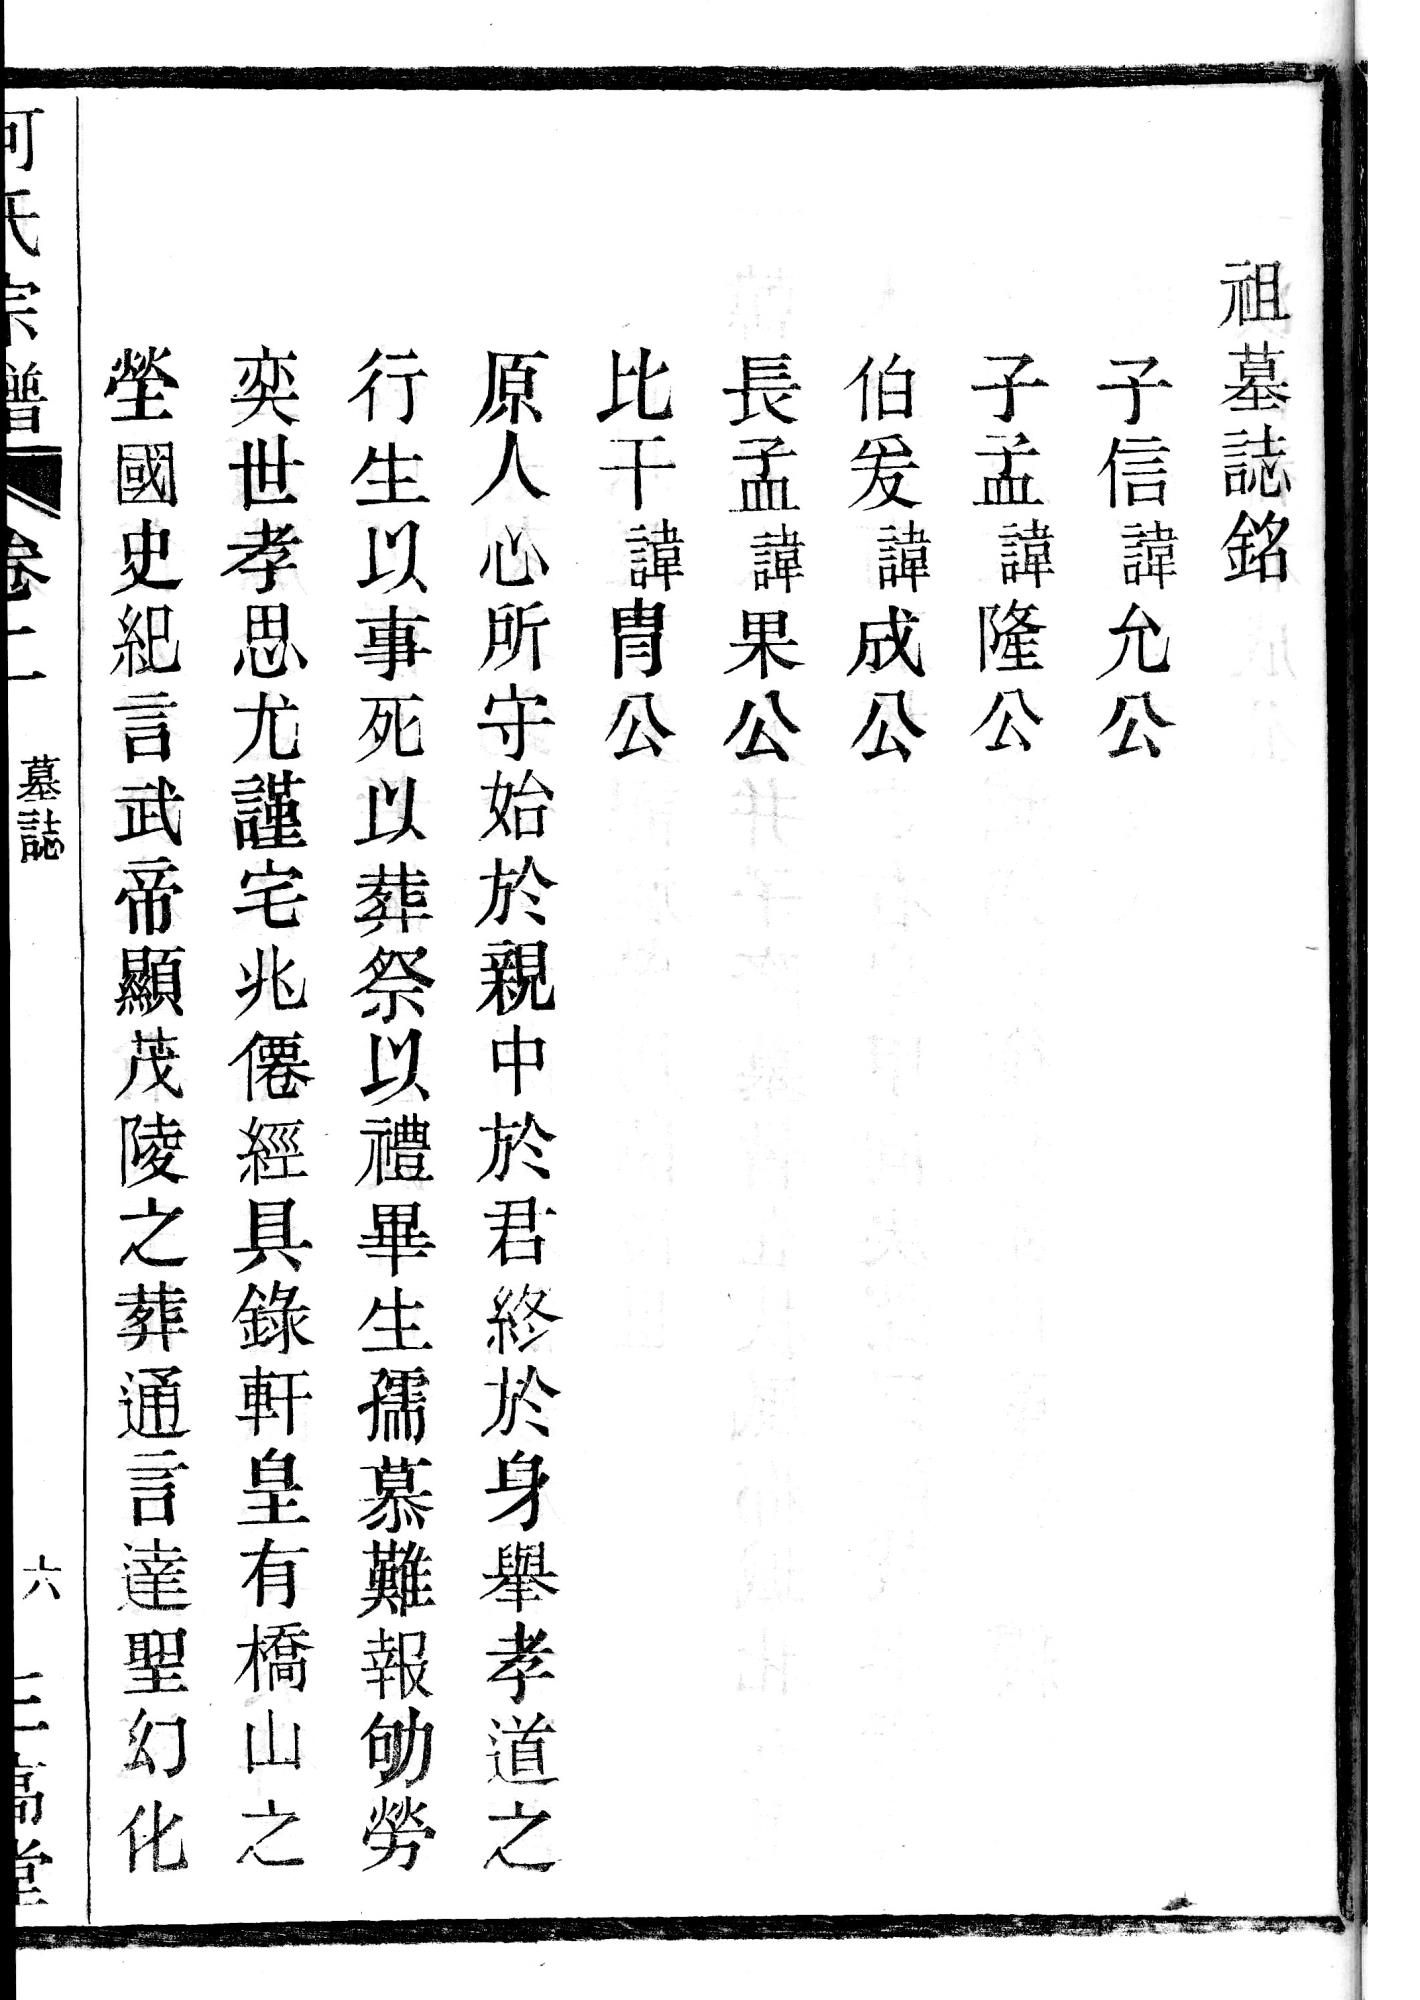 祖墓誌銘
子信諱允公
子孟諱隆公
伯爰諱成公
長孟諱果公
比干諱胄公
原人心所守始於親中於君終於身舉孝道之
行生以事死以葬祭以禮畢生孺慕難報劬勞
奕世孝思尤謹宅兆僊經具錄軒皇有橋山之
塋國史紀言武帝顯茂陵之葬通言達聖幻化
何氏宗譜 卷二 墓誌 六 三高堂